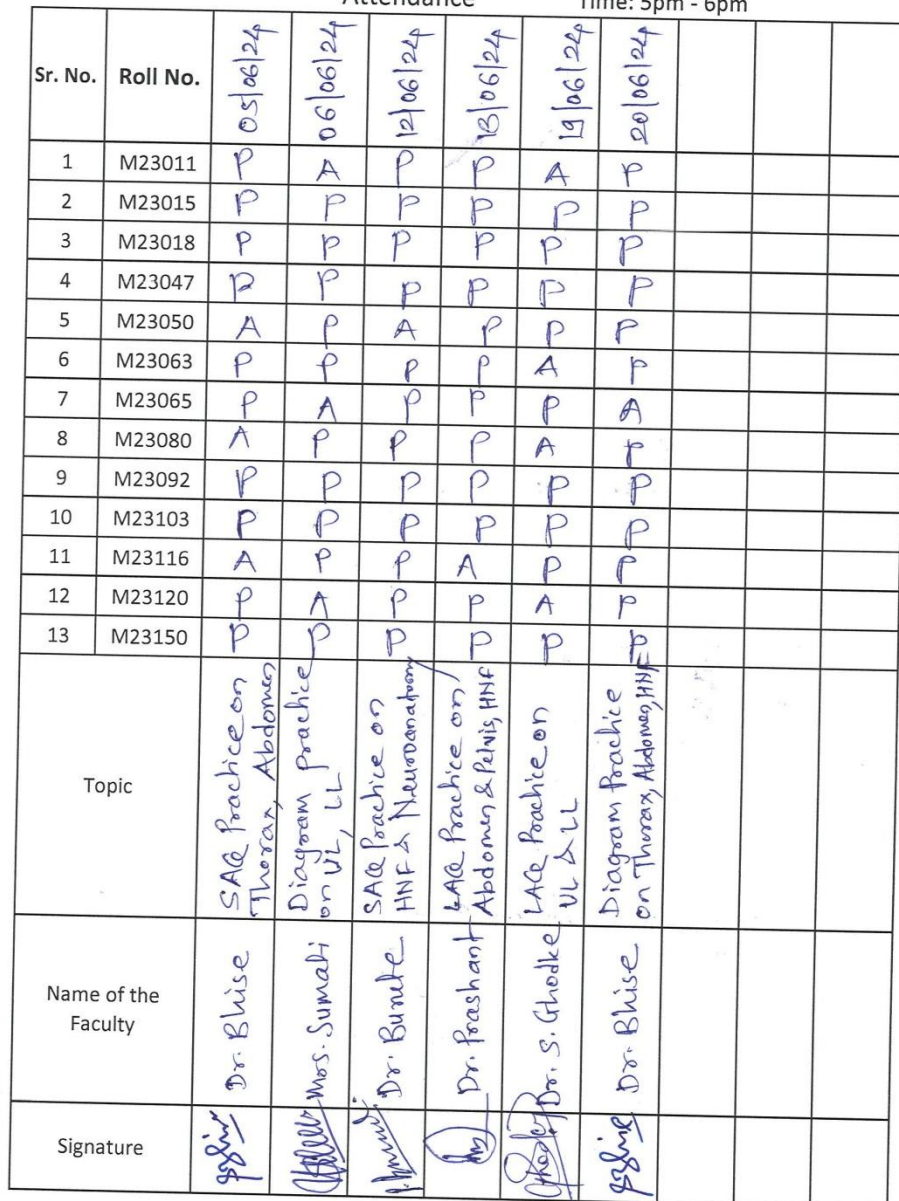 Attendance Time: 5pm - 6pm
Sr. No. Roll No. 05/06/24 06/06/24 12/06/24 13/06/24 19/06/24 20/06/24
1 M23011 P A P P A P
2 M23015 P P P P P P
3 M23018 P P P P P P
4 M23047 P P P P P P
5 M23050 A P A P P P
6 M23063 P P P P A P
7 M23065 P A P P P A
8 M23080 A P P P A P
9 M23092 P P P P P P
10 M23103 P P P P P P
11 M23116 A P P A P P
12 M23120 P A P P A P
13 M23150 P P P P P P
Topic
SAQ Practice on
Thorax, Abdomen
Diagram Practice
on UL, LL
SAQ Practice on
HNF & Neuroanatomy
LAQ Practice on
Abdomen & Pelvis, HNF
LAQ Practice on
UL & LL
Diagram Practice
on Thorax, Abdomen, HNF
Name of the
Faculty
Dr. Bhise
Mrs. Sumati
Dr. Prashant
Dr. S. Ghodke
Dr. Bhise
Signature